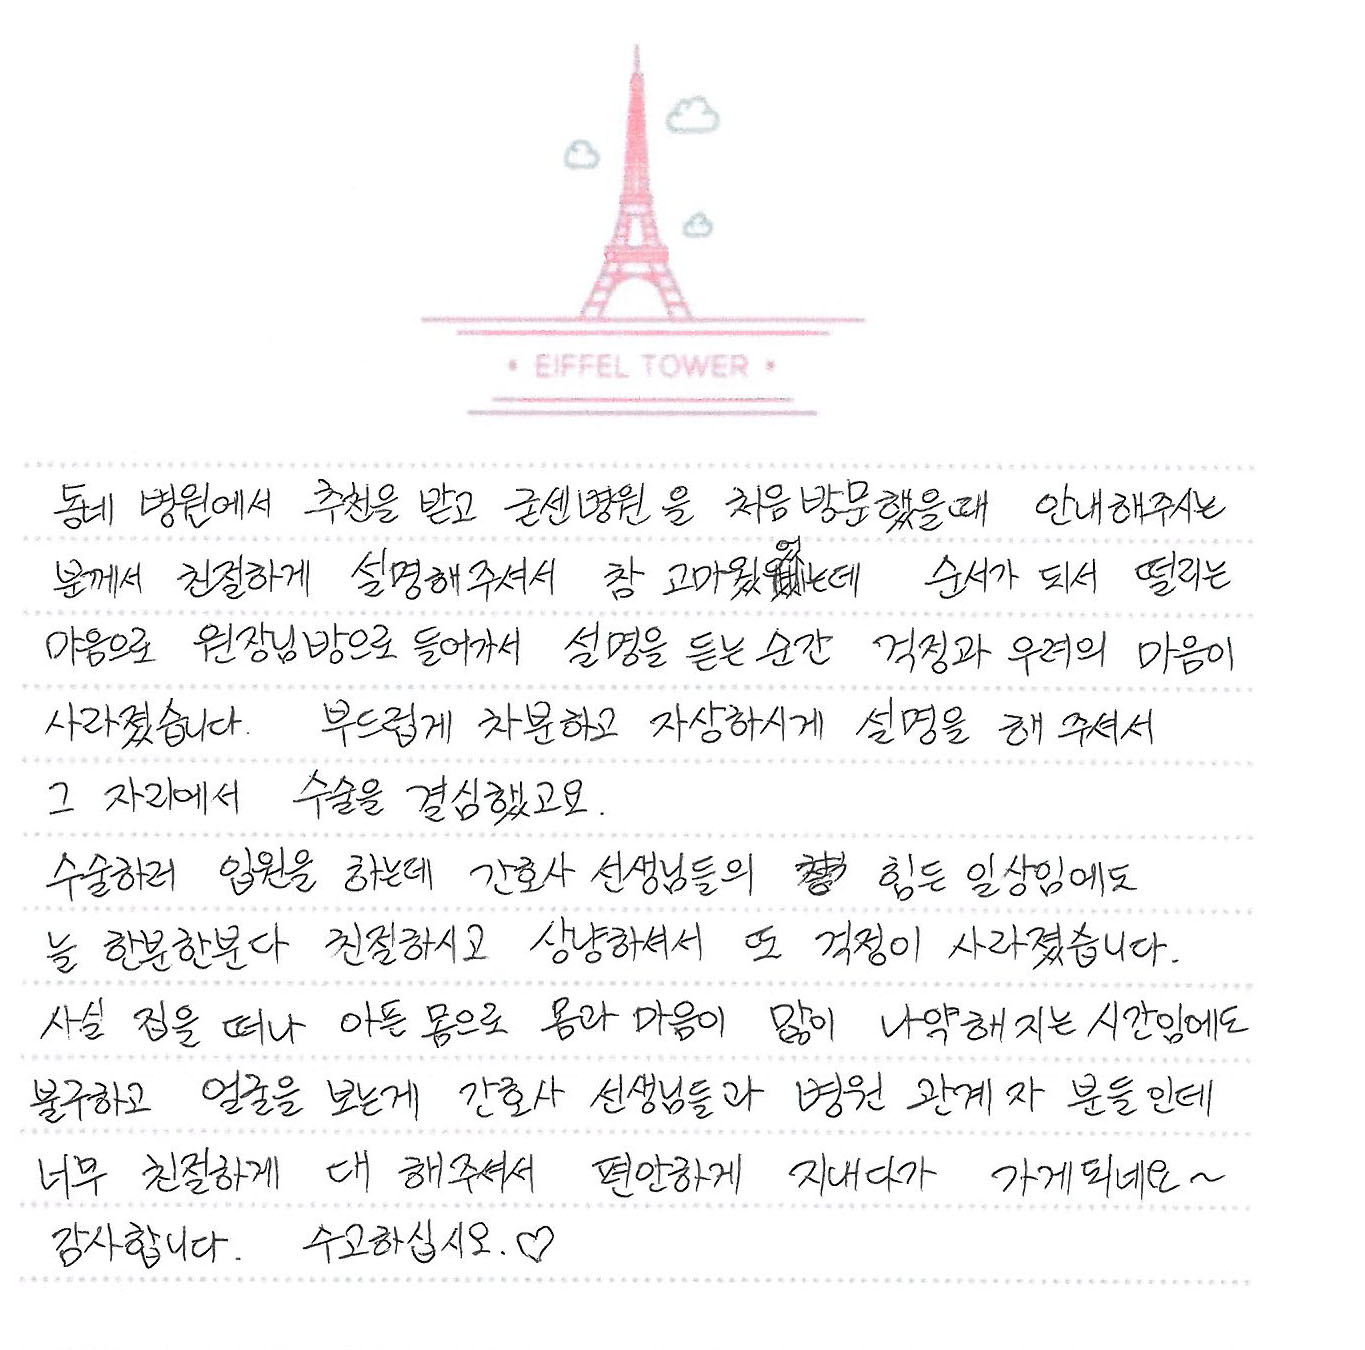 • EIFFEL TOWER •
동네 병원에서 추천을 받고 굳센병원을 처음 방문했을때 안내해주시는
분께서 친절하게 설명해주셔서 참 고마웠는데 순서가 되서 떨리는
마음으로 원장님방으로 들어가서 설명을 듣는 순간 걱정과 우려의 마음이
사라졌습니다. 부드럽게 차분하고 자상하시게 설명을 해 주셔서
그 자리에서 수술을 결심했고요.
수술하러 입원을 하는데 간호사 선생님들의 힘든 일상임에도
늘 한분한분 다 친절하시고 상냥하셔서 또 걱정이 사라졌습니다.
사실 집을 떠나 아픈 몸으로 몸과 마음이 많이 나약해 지는 시간임에도
불구하고 얼굴을 보는게 간호사 선생님들과 병원 관계 자 분들 인데
너무 친절하게 대 해주셔서 편안하게 지내다가 가게되네요~
감사합니다. 수고하십시오.♡